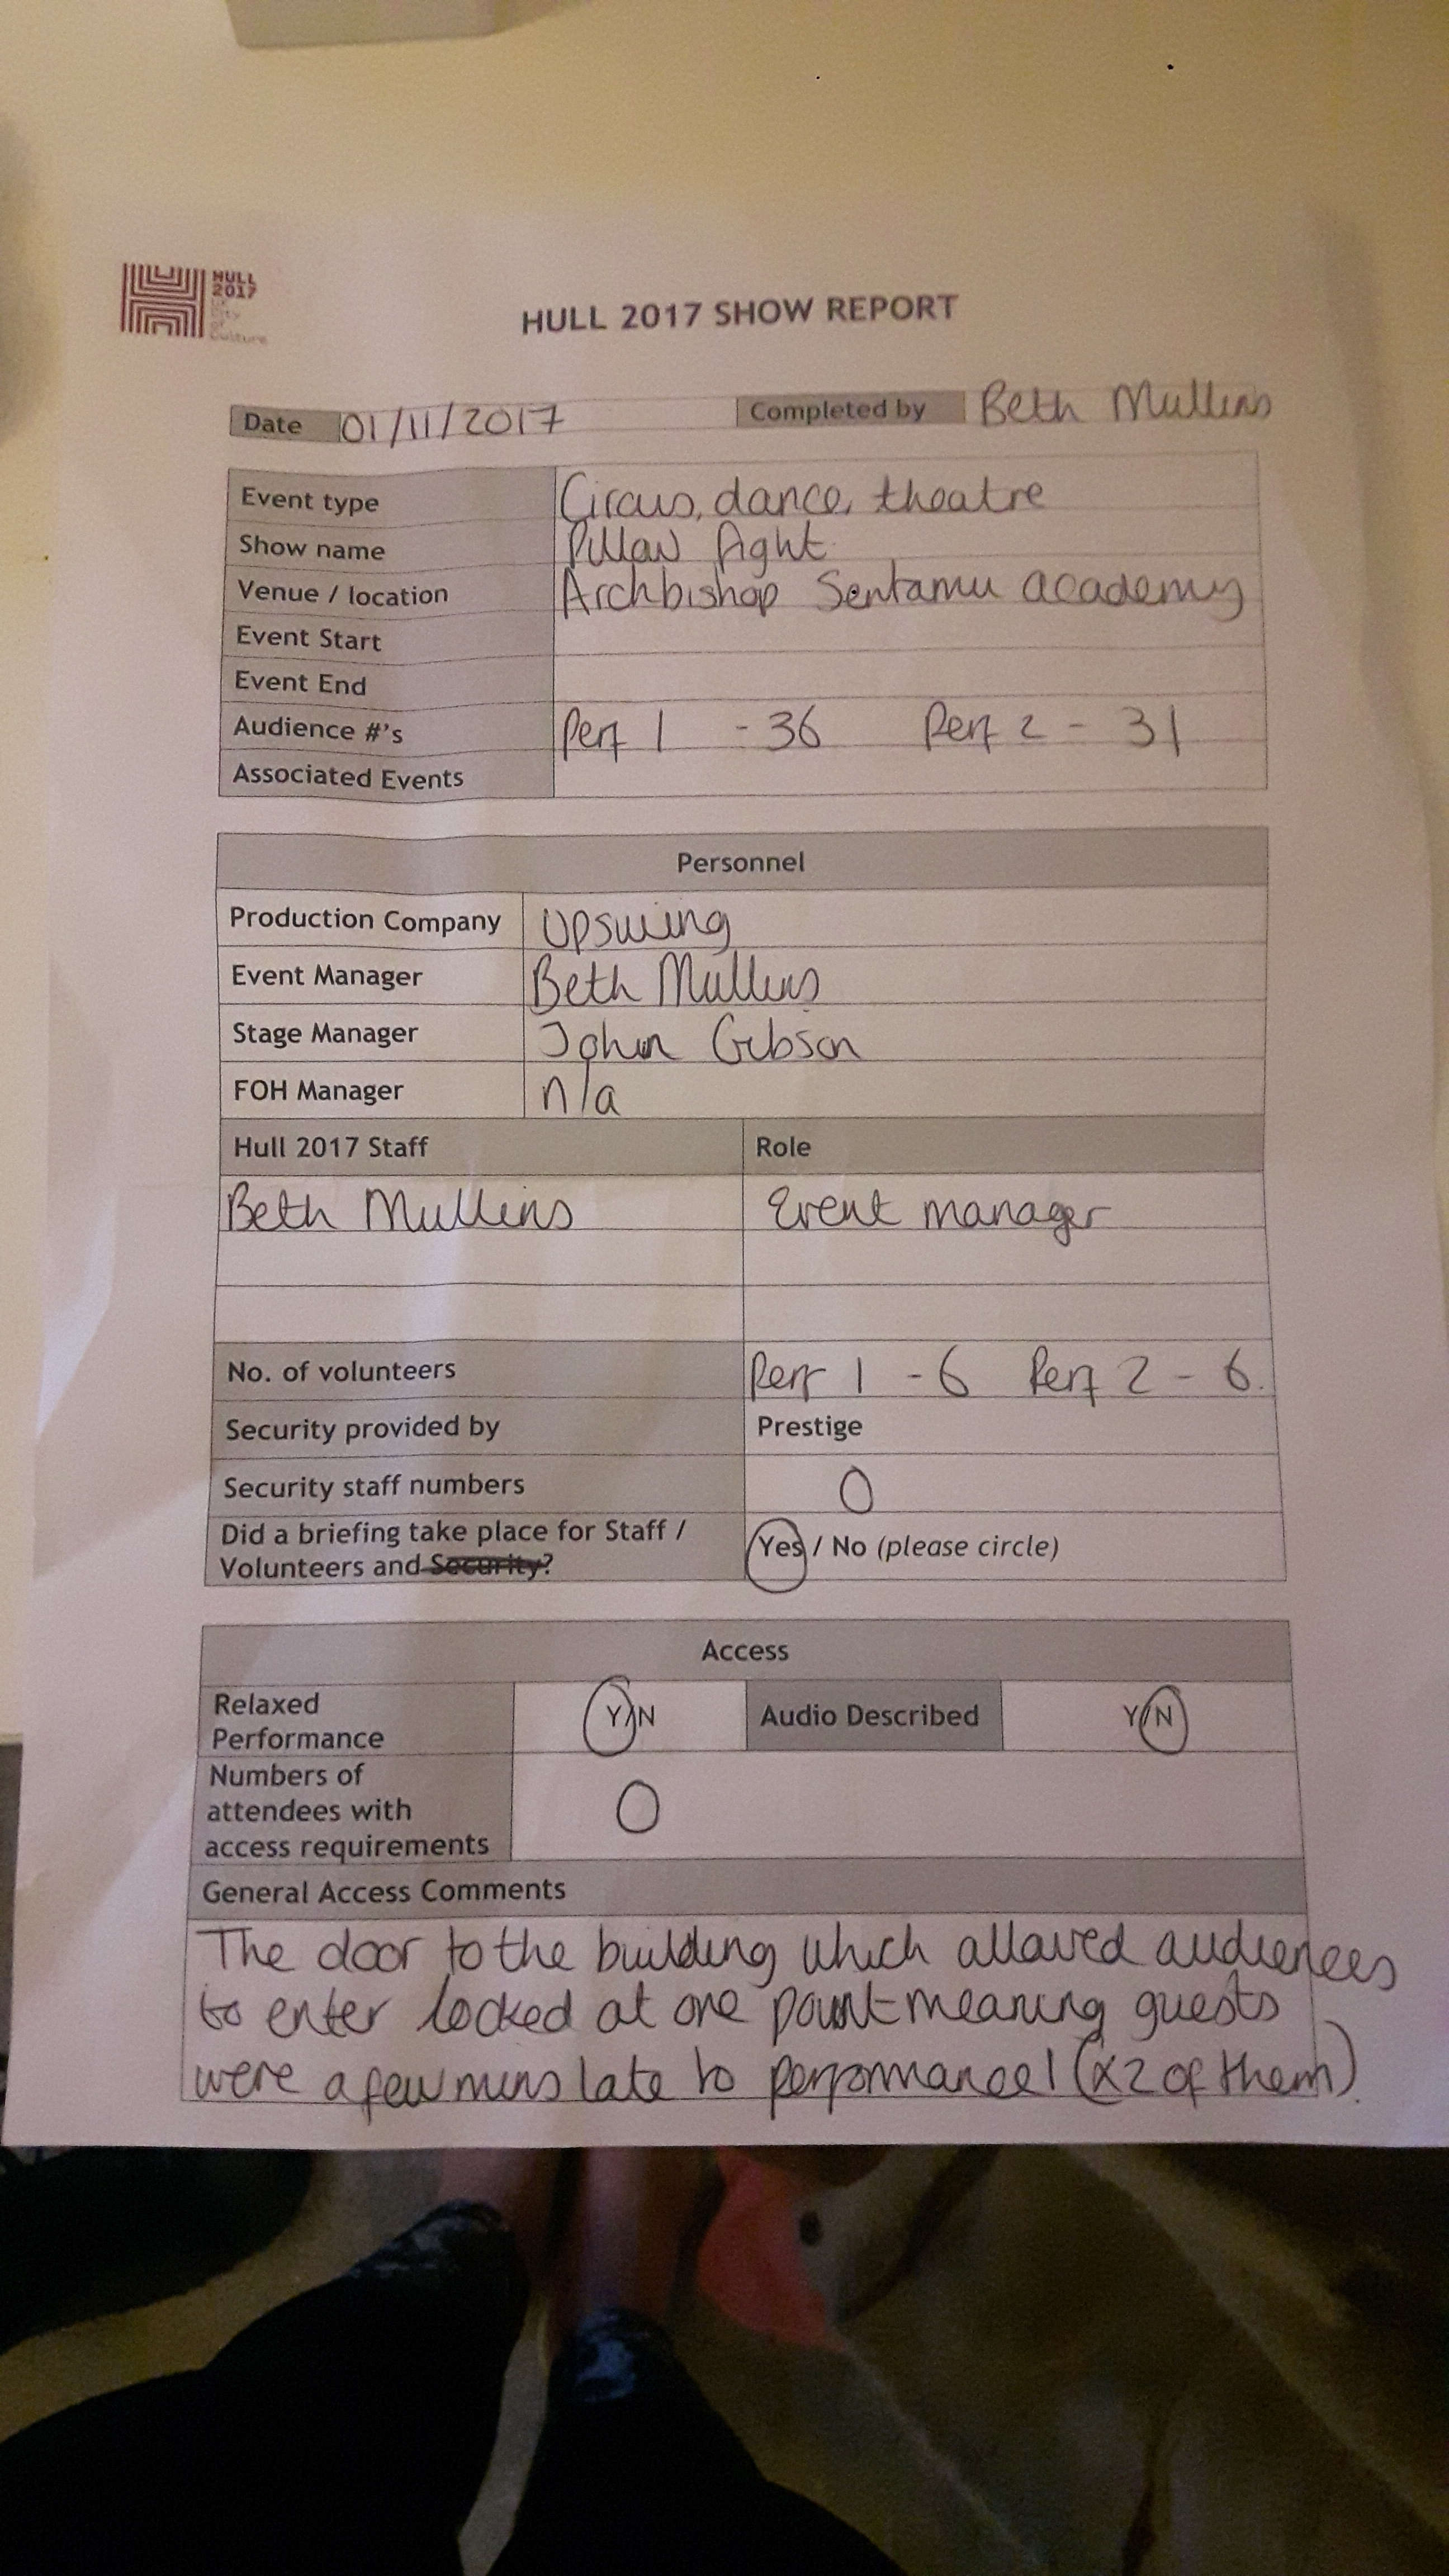 HULL
2017
UK
City
of
Culture
HULL 2017 SHOW REPORT
Date 01/11/2017 Completed by Beth Mullins
Event type Circus, dance, theatre
Show name Pillow Fight
Venue / location Archbishop Sentamu academy
Event Start
Event End
Audience #'s Perf 1 - 36 Perf 2 - 31
Associated Events
Personnel
Production Company Upswing
Event Manager Beth Mullins
Stage Manager John Gibson
FOH Manager n/a
Hull 2017 Staff Role
Beth Mullins Event manager
No. of volunteers Perf 1 - 6 Perf 2 - 6.
Security provided by Prestige
Security staff numbers 0
Did a briefing take place for Staff /
Volunteers and Security? Yes / No (please circle)
Access
Relaxed
Performance Y/N Audio Described Y/N
Numbers of
attendees with
access requirements 0
General Access Comments
The door to the building which allowed audiences
to enter locked at one point meaning guests
were a few mins late to performance 1 (x2 of them).